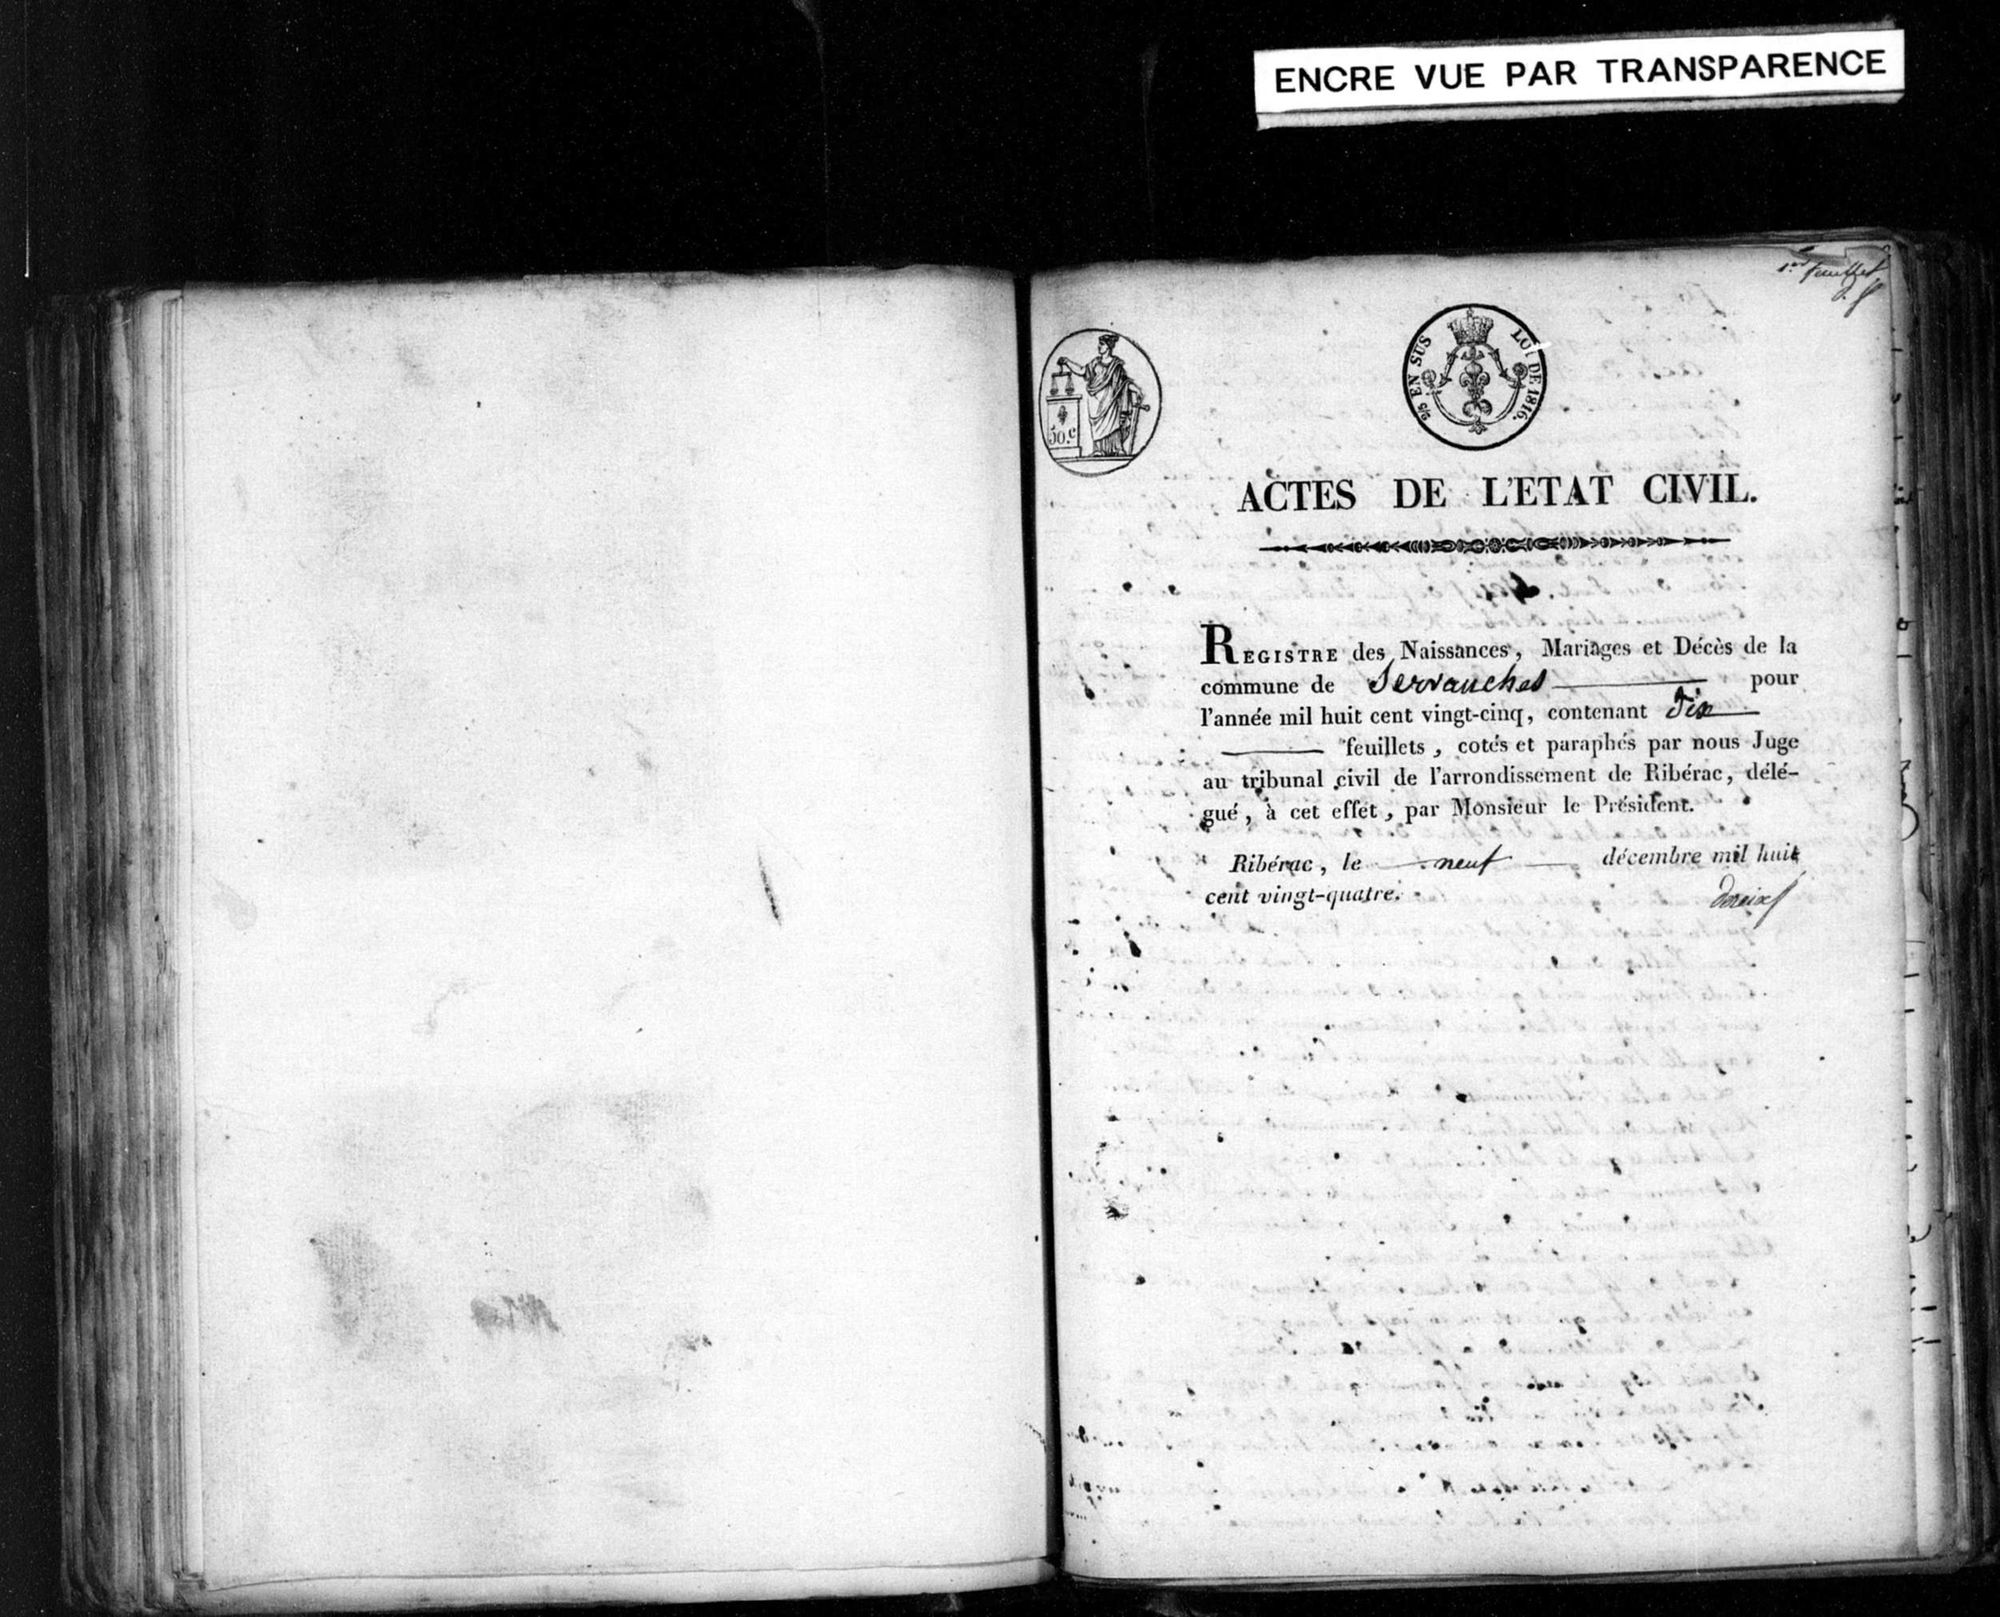 ENCRE VUE PAR TRANSPARENCE
1er feuillet
50.c
EN SUS LOI DE 1816.
ACTES DE L'ETAT CIVIL.
REGISTRE des Naissances, Mariages et Décès de la
commune de Servanches pour
l'année mil huit cent vingt-cinq, contenant dix
feuillets, cotés et paraphés par nous Juge
au tribunal civil de l'arrondissement de Ribérac, délé-
gué, à cet effet, par Monsieur le Président.
Ribérac, le neuf décembre mil huit
cent vingt-quatre.